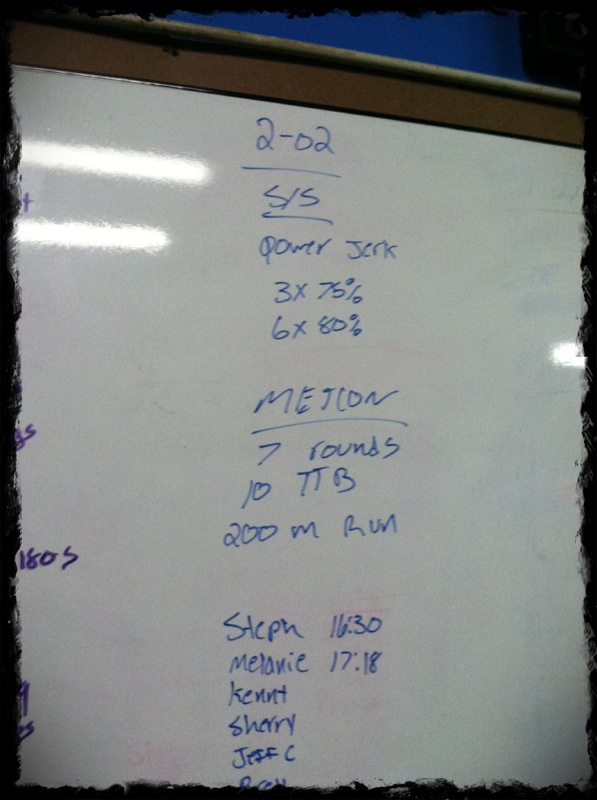 2-02
S/S
Power Jerk
3X 75%
6X 80%
METCON
7 rounds
10 TTB
200 m Run
180s
Steph 16:30
Melanie 17:18
Kennt
Sherry
Jeff C